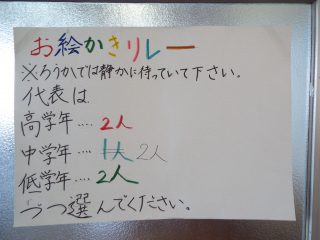 お絵かきリレー
※ろうかでは静かに待っていて下さい。
代表は
高学年‥‥2人
中学年‥‥1人 2人
低学年‥‥2人
づつ選んでください。